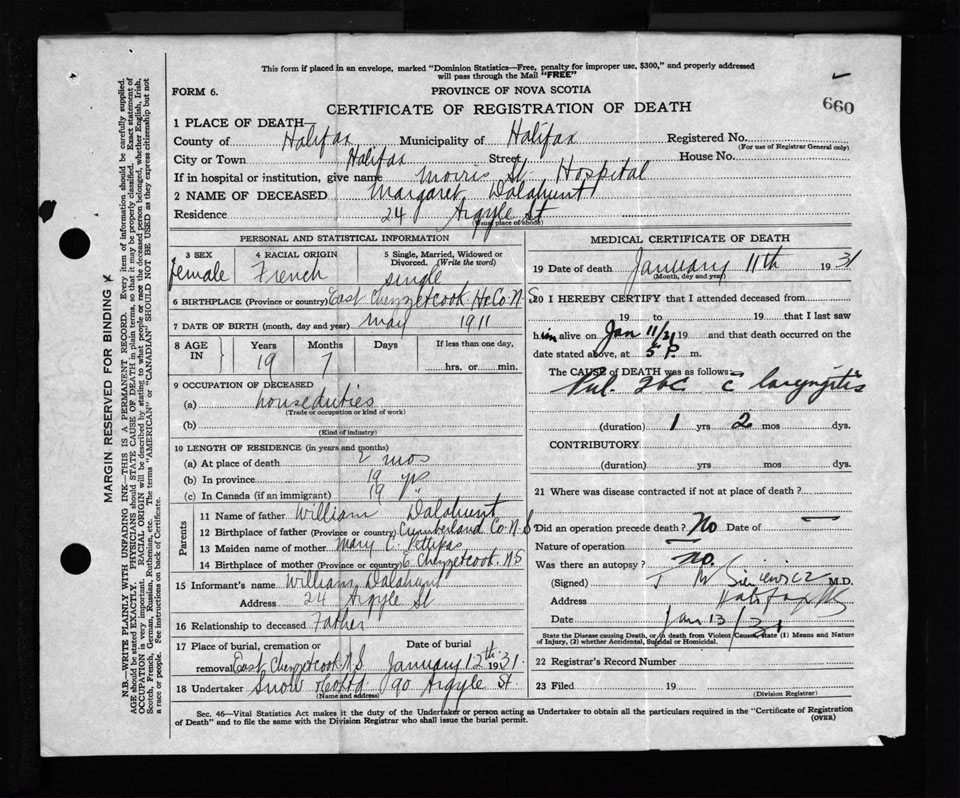 This form if placed in an envelope, marked "Dominion Statistics—Free, penalty for improper use, $300," and properly addressed
will pass through the Mail "FREE"
FORM 6.
PROVINCE OF NOVA SCOTIA
660
CERTIFICATE OF REGISTRATION OF DEATH
1 PLACE OF DEATH—
County of Halifax Municipality of Halifax Registered No.
(For use of Registrar General only)
City or Town Halifax Street House No.
If in hospital or institution, give name Morris St. Hospital
2 NAME OF DECEASED Margaret Dalahunt
Residence 24 Argyle St
(Usual place of abode)
PERSONAL AND STATISTICAL INFORMATION
3 SEX female
4 RACIAL ORIGIN French
5 Single, Married, Widowed or Divorced. (Write the word) single
6 BIRTHPLACE (Province or country) East Chezzetcook Hx Co N S
7 DATE OF BIRTH (month, day and year) May 1911
8 AGE IN Years 19 Months 7 Days If less than one day, hrs. or min.
9 OCCUPATION OF DECEASED
(a) house duties
(Trade or occupation or kind of work)
(b)
(Kind of industry)
10 LENGTH OF RESIDENCE (in years and months)
(a) At place of death 2 mos
(b) In province 19 yrs
(c) In Canada (if an immigrant) 19 "
Parents
11 Name of father William Dalahunt
12 Birthplace of father (Province or country) Cumberland Co. N. S
13 Maiden name of mother Mary C. Pettipas
14 Birthplace of mother (Province or country) E Chezzetcook. N S
15 Informant's name William Dalahunt
Address 24 Argyle St
16 Relationship to deceased Father
17 Place of burial, cremation or removal East Chezzetcook N S Date of burial January 12th 1931.
18 Undertaker Snow & Co Ltd 90 Argyle St
(Name and address)
MEDICAL CERTIFICATE OF DEATH
19 Date of death January 11th 1931
(Month, day and year)
20 I HEREBY CERTIFY that I attended deceased from
19 to 19 that I last saw
him alive on Jan 11/31 19 and that death occurred on the
date stated above, at 5 P. m.
The CAUSE of DEATH was as follows:—
Pul. Tbc c̄ laryngitis
(duration) 1 yrs 2 mos dys.
CONTRIBUTORY
(duration) yrs mos dys.
21 Where was disease contracted if not at place of death?
Did an operation precede death? No Date of —
Nature of operation —
Was there an autopsy? no.
(Signed) T M Sieniewicz M.D.
Address Halifax NS
Date Jan 13/31
State the Disease causing Death, or in death from Violent Causes, state (1) Means and Nature
of Injury, (2) whether Accidental, Suicidal or Homicidal.
22 Registrar's Record Number
23 Filed 19
(Division Registrar)
Sec. 46—Vital Statistics Act makes it the duty of the Undertaker or person acting as Undertaker to obtain all the particulars required in the "Certificate of Registration
of Death" and to file the same with the Division Registrar who shall issue the burial permit.
(OVER)
MARGIN RESERVED FOR BINDING
N.B.—WRITE PLAINLY WITH UNFADING INK—THIS IS A PERMANENT RECORD. Every item of information should be carefully supplied.
AGE should be stated EXACTLY. PHYSICIANS should STATE CAUSE OF DEATH in plain terms, so that it may be properly classified. Exact statement of
OCCUPATION is very important. RACIAL ORIGIN will be described by stating to what people or race the deceased person belonged, whether English, Irish,
Scotch, French, German, Russian, Ruthenian, etc. The terms "AMERICAN" or "CANADIAN" SHOULD NOT BE USED as they express citizenship but not
a race or people. See instructions on back of Certificate.